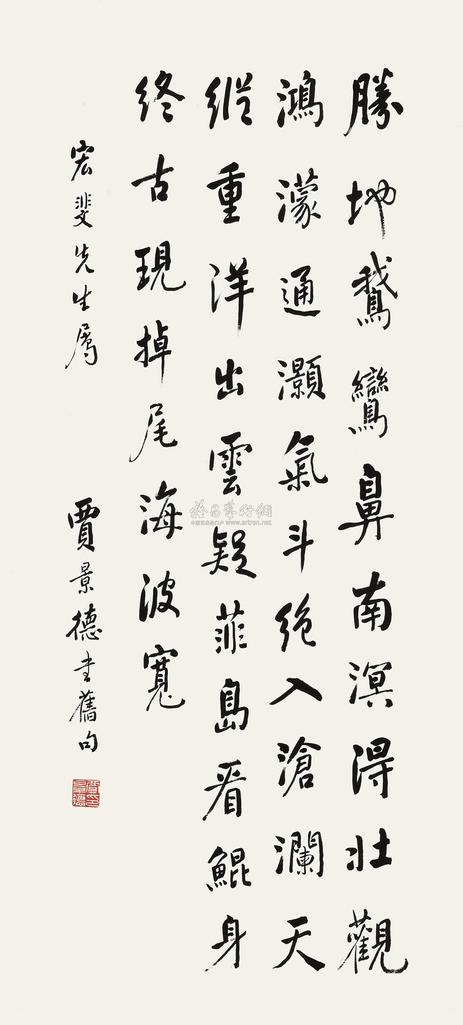 勝地鵝鸞鼻南溟得壯觀
鴻濛通灝氣斗絕入滄瀾天
縱重洋出雲疑菲島看鯤身
終古現掉尾海波寬
宏斐先生屬
賈景德書舊句
www.artron.net